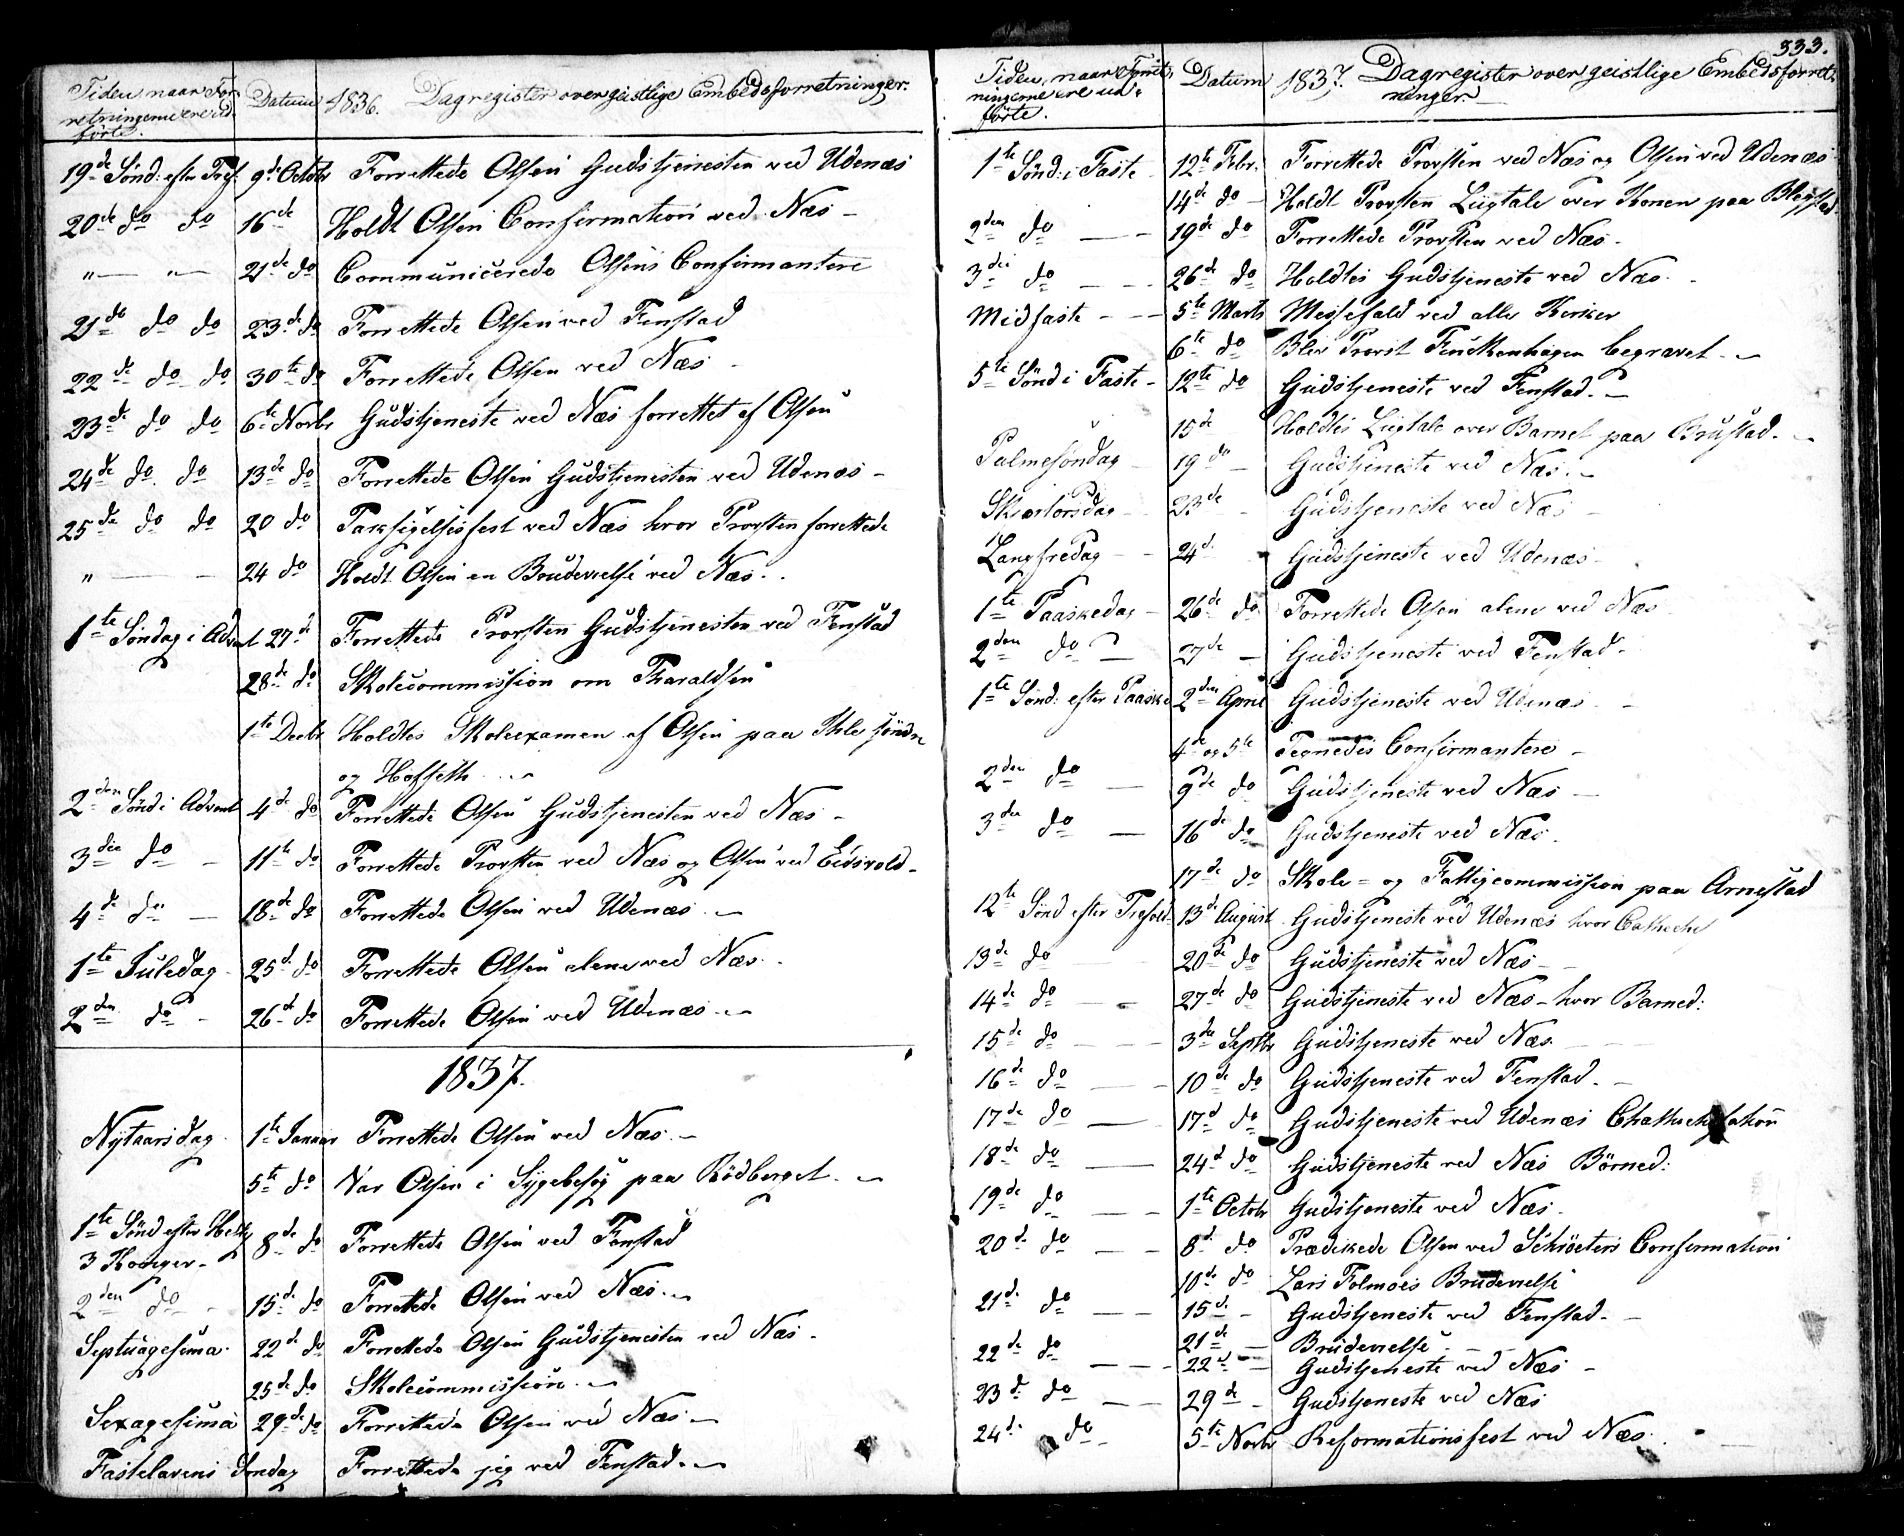 Tiden, naar For-
retningerne ere ud-
førte. Datum 1836. Dagregister over geistlige Embedsforretninger.
19de Sønd: efter Tref. 9de Octobr Forrettede Olsen Gudstjenesten ved Udenæs
20de do do 16de Holdt Olsen Confirmation ved Næs –
" — " — 21de do Communicerede Olsens Confirmantere
21de do do 23de do Forrettede Olsen ved Fenstad
22de do do 30te do Forrettede Olsen ved Næs
23de do do 6te Novbr Gudstjeneste ved Næs forrettet af Olsen
24de do do 13de do Forrettede Olsen Gudstjenesten ved Udenæs –
25de do do 20 do Taksigelsesfest ved Næs hvor Provsten forrettede
" — — 24 do Holdt Olsen en Brudevielse ved Næs.
1te Søndag i Advent 27de Forrettede Provsten Gudstjenesten ved Fenstad
28de do Skolecommission om Tharaldsen
1te Decbr Holdtes Skoleexamen af Olsen paa Ihle søndre
og Hofseth
2den Sønd i Advent 4de do Forrettede Olsen Gudstjenesten ved Næs –
3die do – 11te do Forrettede Provsten ved Næs og Olsen ved Eidsvold –
4de do — 18de do Forrettede Olsen ved Udenæs. –
1te Juledag 25de do Forrettede Olsen alene ved Næs.
2den do – 26de do Forrettede Olsen ved Udenæs. –
1837.
Nytaarsdag 1te Januar Forrettede Olsen ved Næs. –
5te do Var Olsen i Sygebesøg paa Rødberget. –
1te Sønd efter Hellig
3 Konger – 8de do Forrettede Olsen ved Fenstad
2den do – 15de do Forrettede Olsen ved Næs. –
Septuagesima. 22de do Forrettede Olsen Gudstjenesten ved Næs –
25de do Skolecommission. –
Sexagesima 29de do Forrettede Olsen ved Næs. –
Fastelavens Søndag Forrettede jeg ved Fenstad. –
333.
Tiden, naar Forret-
ningerne ere ud-
førte. Datum 1837. Dagregister over geistlige Embedsforret-
ninger.
1te Sønd: i Faste 12te Febr. Forrettede Provsten ved Næs og Olsen ved Udenæs
14de do – Holdt Provsten Liigtale over Konen paa
2den do — 19de do Forrettede Provsten ved Næs.
3die do — 26de do Holdtes Gudstjeneste ved Næs.
Midfaste – – 5te Marts Messefald ved alle Kirker
6te do Blev Provst Finckenhagen begravet. –
5te Sønd i Faste – 12te do Gudstjeneste ved Fenstad. –
15de Holdtes Liigtale over Barnet paa Brustad. –
Palmesøndag 19de – Gudstjeneste ved Næs. –
Skjærtorsdag 23de – Gudstjeneste ved Næs –
Langfredag – 24de – Gudstjeneste ved Udenæs –
1te Paaskedag – 26de do Forrettede Olsen alene ved Næs
2den do — 27de – Gudstjeneste ved Fenstad.
1te Sønd: efter Paaske 2den April Gudstjeneste ved Udenæs –
4de og 5te Tegnedes Confirmantere –
2den do — 9de do Gudstjeneste ved Næs –
3die do — 16de do Gudstjeneste ved Næs.
17de do Skole- og Fattigcommission paa Arnestad
12te Sønd efter Trefold. 13de August Gudstjeneste ved Udenæs hvor
13de do 20de do Gudstjeneste ved Næs –
14de do — 27de do Gudstjeneste ved Næs – hvor Barned:
15de do — 3die Septbr Gudstjeneste ved Næs.
16de do — 10de do Gudstjeneste ved Fenstad. –
17de do — 17de do Gudstjeneste ved Udenæs
18de do — 24de do Gudstjeneste ved Næs Børned:
19de do — 1te Octobr Gudstjeneste ved Næs.
20de do — 8de do Prædikede Olsen ved Schrøeters Confirmation
10de do Lars Folmoes Brudevielse
21de do — 15de – Gudstjeneste ved Fenstad. –
21de – Brudevielse –
22de do — 22de – Gudstjeneste ved Næs –
23de do — 29de – Gudstjeneste ved Næs
24de do – 5te Novbr Reformationsfest ved Næs.